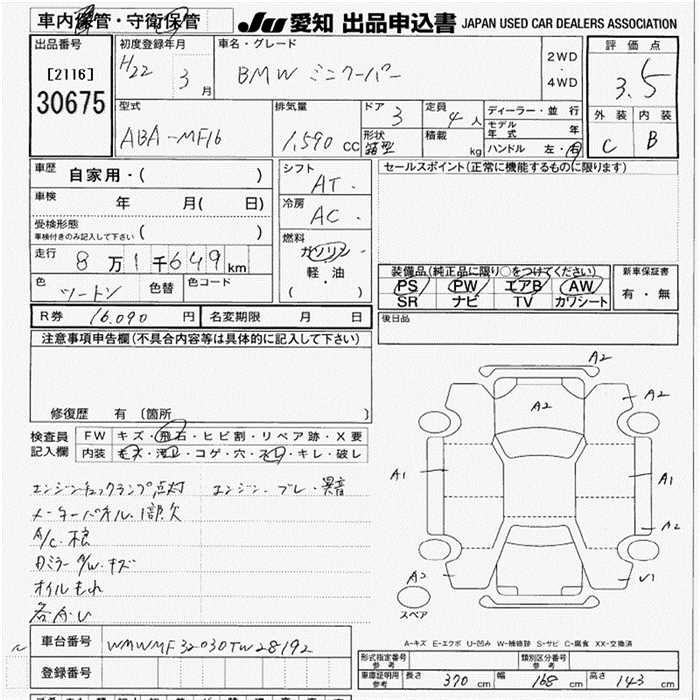 車内保管・守衛保管 JU 愛知 出品申込書 JAPAN USED CAR DEALERS ASSOCIATION
出品番号 [2116] 30675
初度登録年月 H22 3月
車名・グレード BMW ミニクーパー
2WD・4WD
評価点 3.5
外装 C 内装 B
型式 ABA-MF16
排気量 1,590 cc
ドア 3 形状 箱型
定員 4人 積載 kg
ディーラー・並行
モデル年式 年
ハンドル 左・右
車歴 自家用・( )
車検 年 月( 日)
受検形態 車検付きのみ記入して下さい ( )
走行 8万1千649km
色 ツートン 色替 色コード
シフト AT.
冷房 AC.
燃料 ガソリン・軽油・( )
セールスポイント(正常に機能するものに限ります)
装備品(純正品に限り○をつけてください)
PS PW エアB AW
SR ナビ TV カワシート
新車保証書 有・無
R券 16,090 円 名変期限 月 日
後日品
注意事項申告欄(不具合内容等は具体的に記入して下さい)
修復歴 有 〔箇所 〕
検査員記入欄 FW キズ・飛石・ヒビ割・リペア跡・X要
内装 キズ・汚れ・コゲ・穴・スレ・キレ・破し
エンジンチェックランプ点灯 エンジン・ブレ・異音
メーターパネル・1部欠
A/C・不良
ミラー キズ
オイルもれ
A2
A2
A2
A1
A1
A2
A2
U1
スペア
A-キズ E-エクボ U-凹み W-補修跡 S-サビ C-腐食 XX-交換済
車台番号 WMWMF32030TW28192
登録番号
形式指定番号 参考 類別区分番号 参考
車庫証明用 参考 長さ 370 cm 幅 168 cm 高さ 143 cm